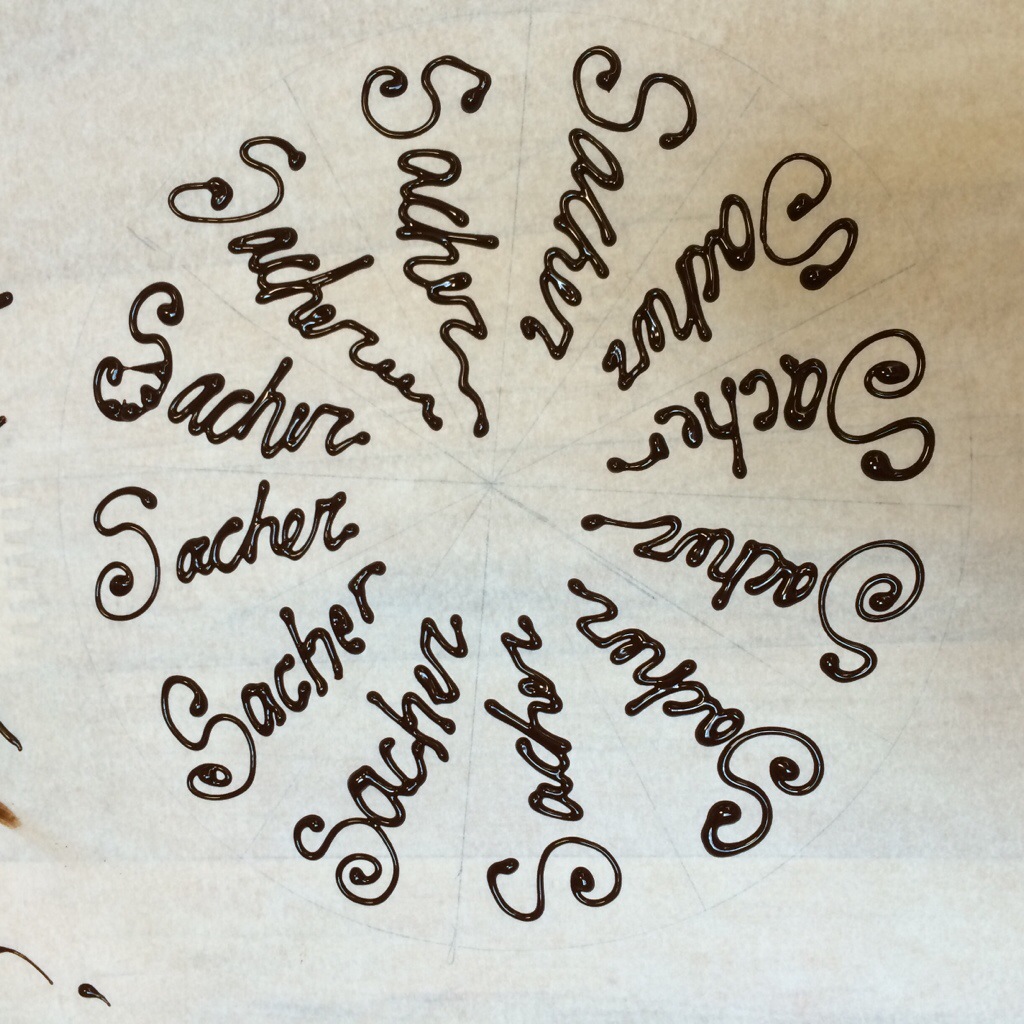 Sacher
Sacher
Sacher
Sacher
Sacher
Sacher
Sacher
Sacher
Sacher
Sacher
Sacher
Sacher